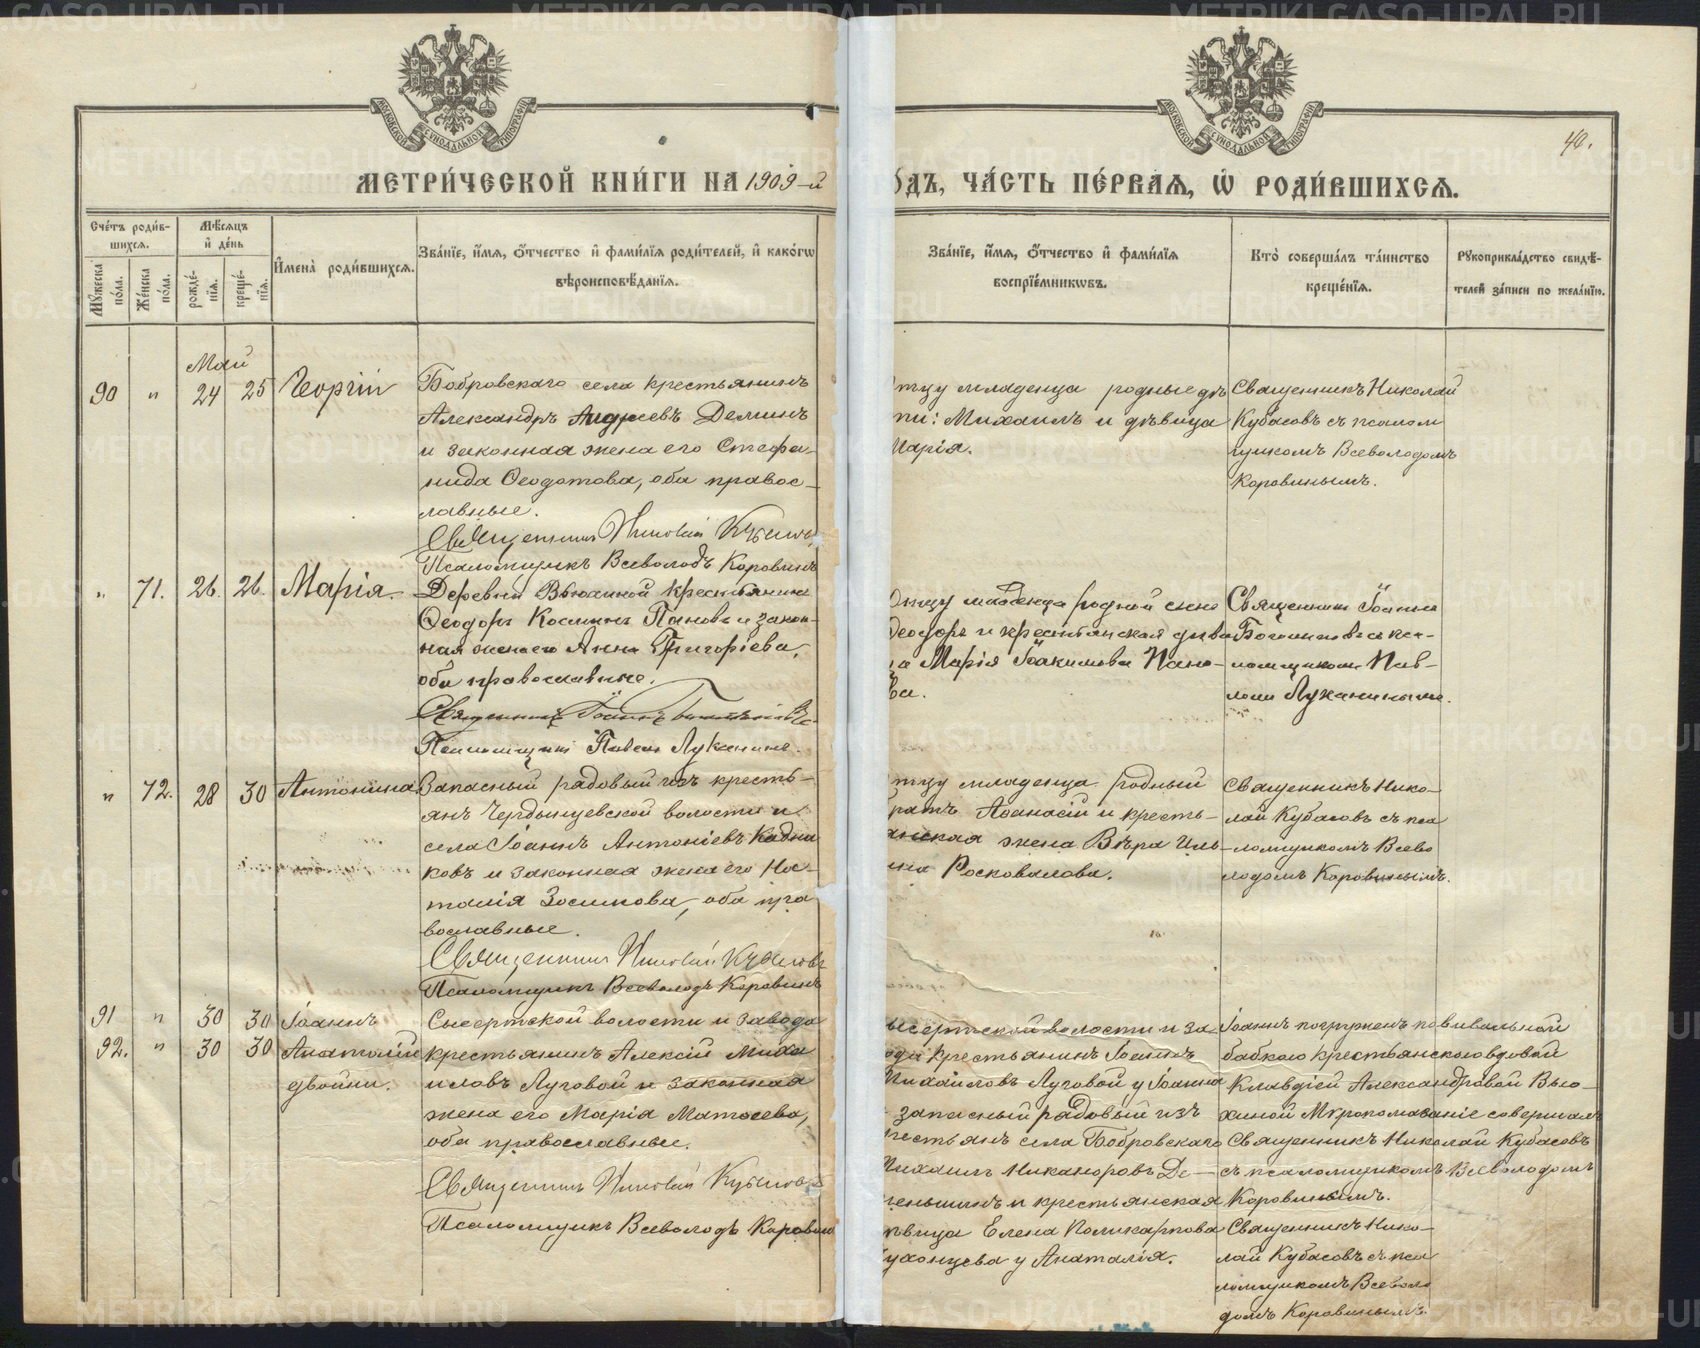 40.
МЕТРИ́ЧЕСКОЙ КНИ́ГИ НА 1909-й
ОДЪ, ЧА́СТЬ ПЕ́РВАѦ, Ѡ РОДИ́ВШИХСѦ.
Сче́тъ роди́в-
шихсѧ.
Мѣ́сѧцъ
и҆ де́нь
Мꙋ́жеска по́ла.
Же́нска по́ла.
рожде́-
нїѧ.
креще́-
нїѧ.
И҆мена̀ роди́вшихсѧ.
Зва́нїе, и҆́мѧ, ѻ҆́тчество и҆ фами́лїѧ роди́телей, и҆ како́гѡ
вѣроисповѣ́данїѧ.
Зва́нїе, и҆́мѧ, ѻ҆́тчество и҆ фами́лїѧ
воспрїе́мникѡвъ.
Кто̀ соверша́лъ та́инство
креще́нїѧ.
Рꙋкоприкла́дство свидѣ́-
телей за́писи по жела́нїю.
Май
90 " 24 25 Георгій
Бобровскаго села крестьянинъ
Александръ Андреевъ Деминъ
и законная жена его Стефа-
нида Ѳеодотова, оба правос-
лавные.
Священникъ Николай Кубасовъ
Псаломщикъ Всеволодъ Коровинъ
отцу младенца родные дѣ
ти: Михаилъ и дѣвица
Марія.
Священникъ Николай
Кубасовъ съ псалом
щикомъ Всеволодомъ
Коровинымъ.
" 71. 26. 26. Марія.
Деревни Вьюхиной крестьянинъ
Ѳеодоръ Косминъ Пановъ и закон-
ная жена его Анна Григоріева,
оба православные.
Священникъ Іоаннъ
Псаломщикъ Павелъ Луканинъ.
Отцу младенца родной сынъ
Ѳеодоръ и крестьянская дѣви
ца Марія Іоакимова Пано-
ва.
Священникъ Іоаннъ
съ пса-
ломщикомъ Пав-
ломъ Луканинымъ.
" 72. 28 30 Антонина
Запасный рядовый изъ кресть-
янъ Чердынцевской волости и
села Іоаннъ Антоніевъ Кадни
ковъ и законная жена его На-
талія Зосимова, оба пра
вославные.
Священникъ Николай Кубасовъ
Псаломщикъ Всеволодъ Коровинъ
отцу младенца родный
братъ Аѳанасій и кресть-
янская жена Вѣра Иль-
ина Росковалова.
Священникъ Нико-
лай Кубасовъ съ пса
ломщикомъ Всево
лодомъ Коровинымъ.
91 " 30 30 Іоаннъ
92. " 30 30 Анатолій
двойни.
Сысертской волости и завода
крестьянинъ Алексій Миха
иловъ Луговой и законная
жена его Марія Матѳеева,
оба православные.
Священникъ Николай Кубасовъ
Псаломщикъ Всеволодъ Коровинъ
Сысертской волости и за
вода крестьянинъ Іоаннъ
Михаиловъ Луговой у Іоанна
запасный рядовый изъ
крестьянъ села Бобровскаго
Михаилъ Никаноровъ Де-
меньшинъ и крестьянская
дѣвица Елена Поликарпова
у Анатолія.
Іоаннъ погруженъ повивальной
бабкою крестьянскою вдовой
Клавдіей Александровой Вью-
хиной Мѵропомазаніе совершалъ
Священникъ Николай Кубасовъ
съ псаломщикомъ Всеволодомъ
Коровинымъ.
Священникъ Нико-
лай Кубасовъ съ пса
ломщикомъ Всеволо
домъ Коровинымъ.
METRIKI.GASO-URAL.RU